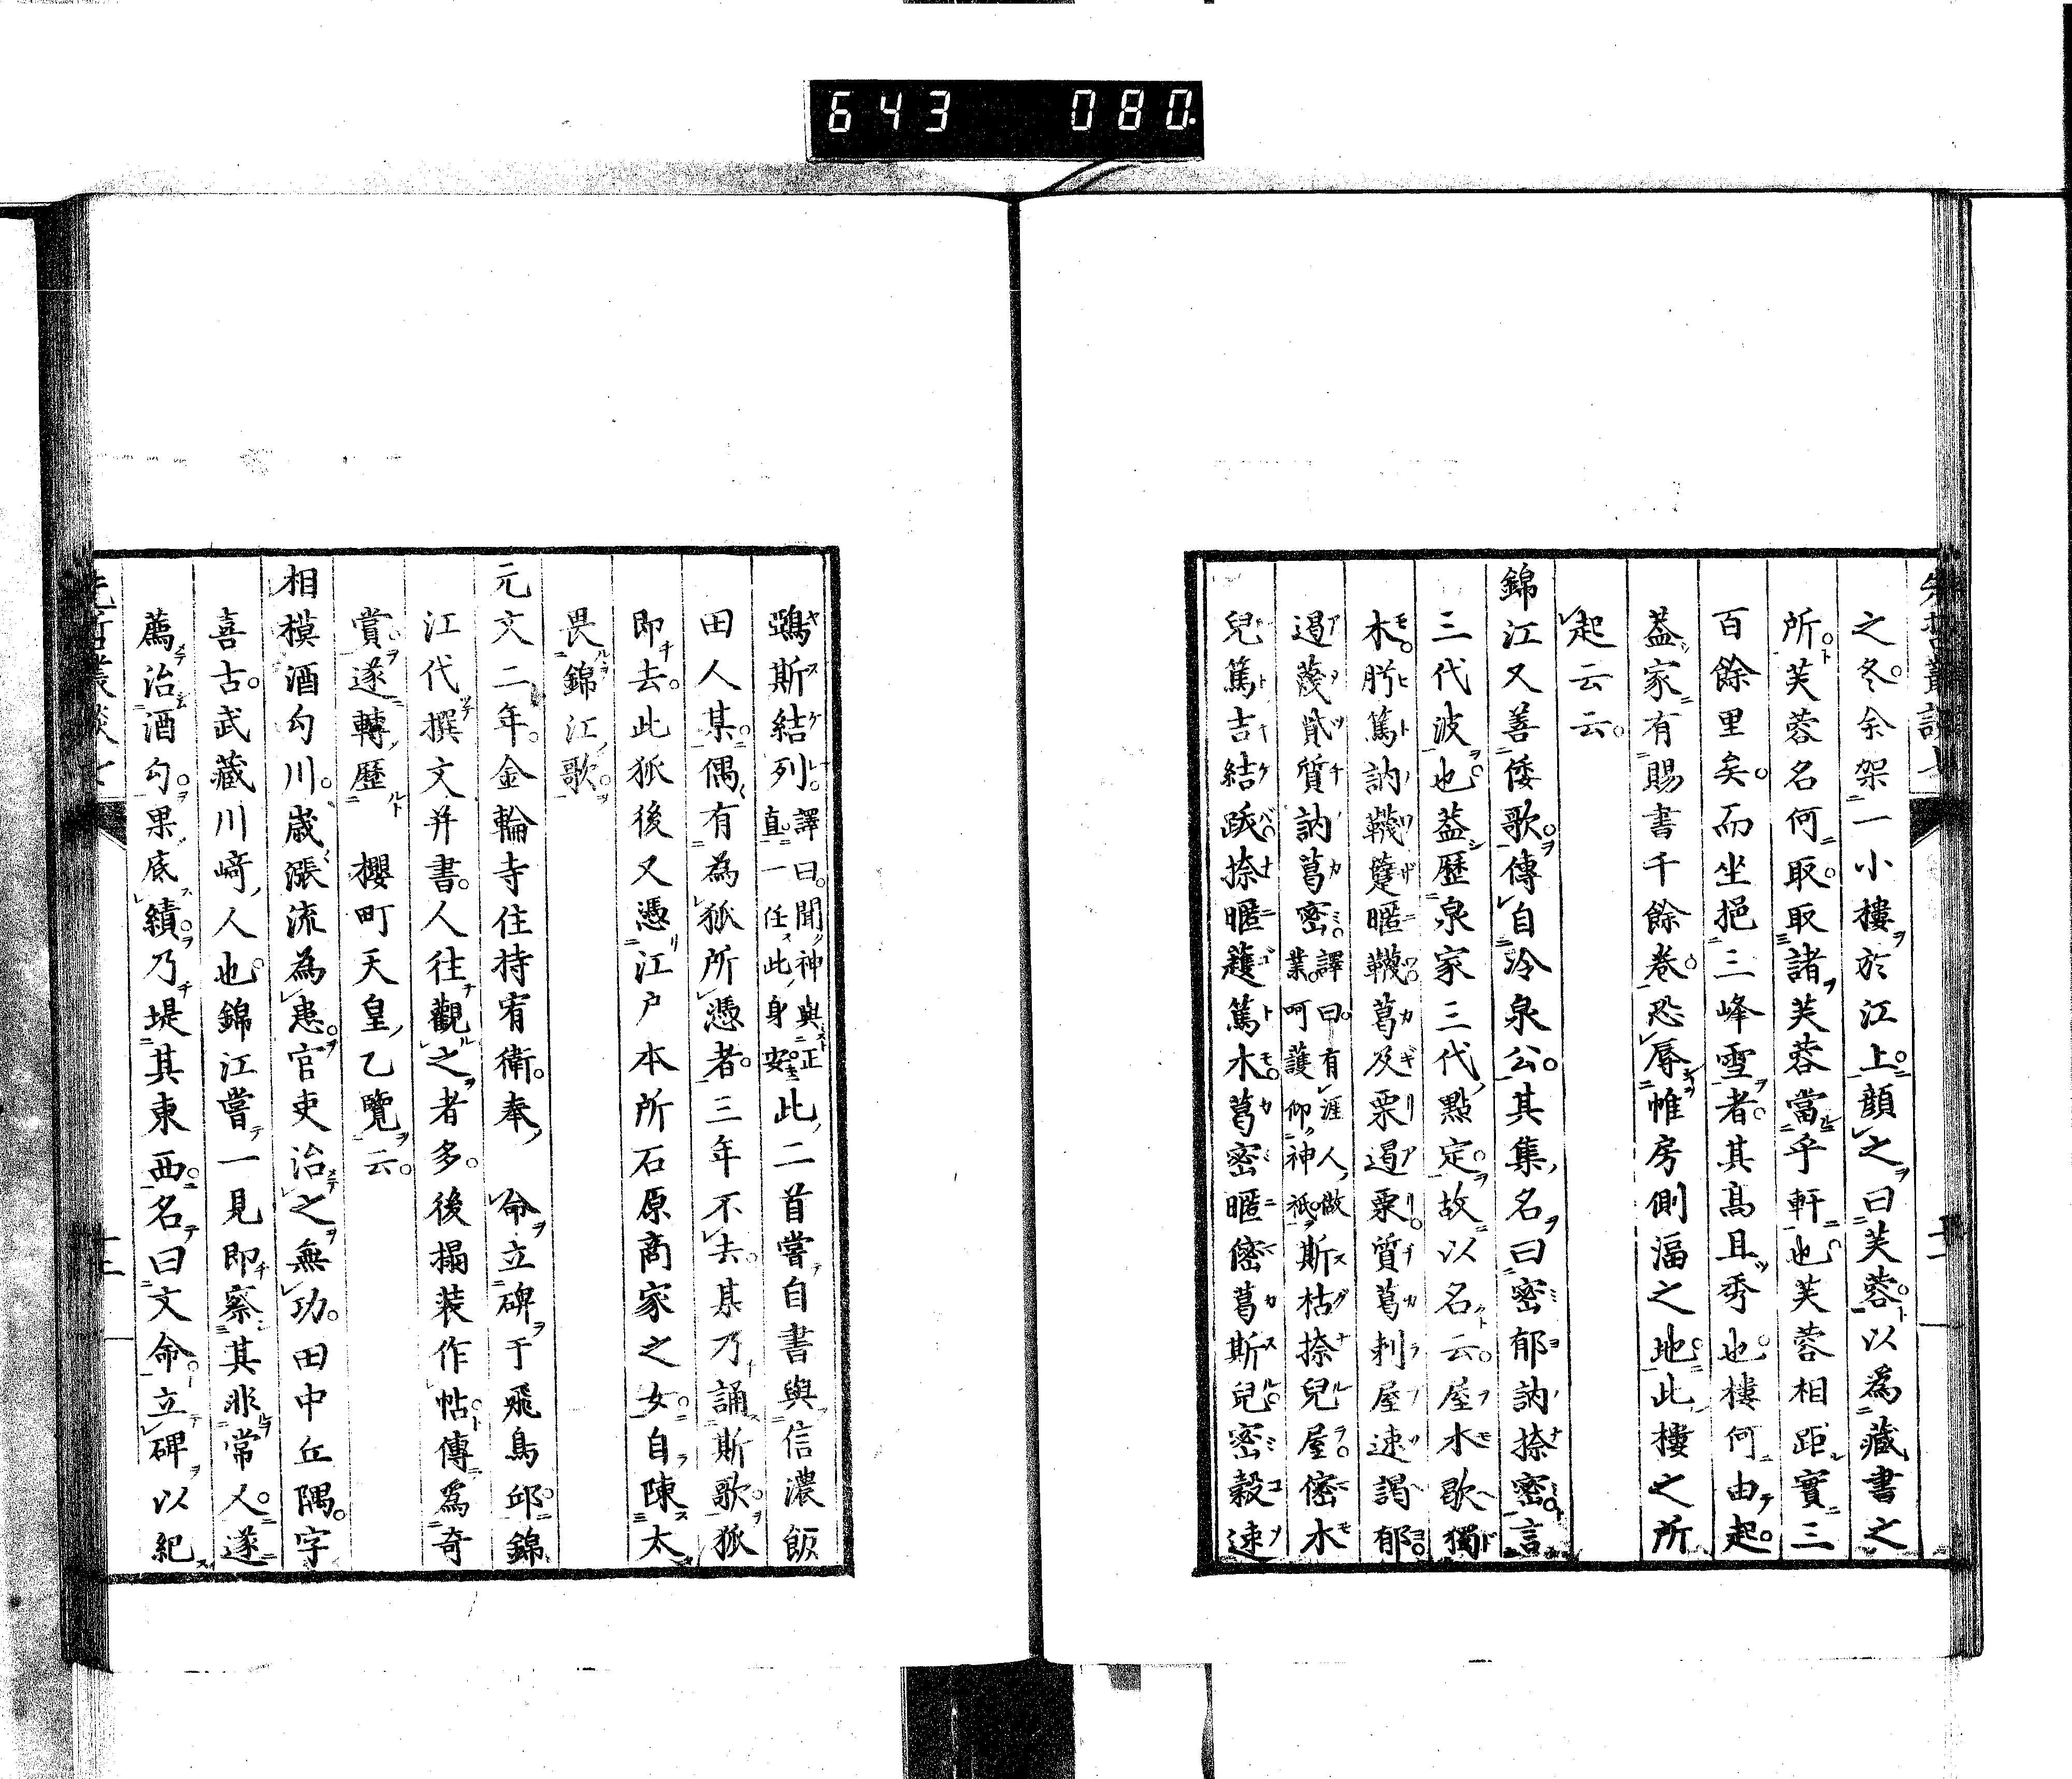 643 080
之冬余架一小樓於江上顏之曰芙蓉以爲藏書之
所芙蓉名何取取諸芙蓉當乎軒也芙蓉相距實三
百餘里矣而坐挹三峰雪者其高且秀也樓何由起
蓋家有賜書千餘卷恐辱帷房側湢之地此樓之所
起云云
錦江又善倭歌傳自冷泉公其集名曰密郁訥捺密言
三代波也蓋歷泉家三代點定故以名云屋木歇獨
木肹篤訥韈躄暱韈葛及栗遏粟質葛剌屋速謁郁
遏薎貮質訥葛密譯曰有涯人做業呵護仰神祗斯枯捺兒屋密木
兒篤吉結跋捺暱護篤木葛密暱密葛斯兒密穀速
鵶斯結列譯曰聞神與正直一任此身安此二首嘗自書與信濃飯
田人某偶有為狐所憑者三年不去某乃誦斯歌狐
即去此狐後又憑江戸本所石原商家之女自陳太
畏錦江歌
元文二年金輪寺住持宥衛奉命立碑于飛鳥邱錦
江代撰文并書人往觀之者多後搨装作帖傳爲奇
賞遂轉歷 櫻町天皇乙覽云
相模酒匂川歲漲流為患官吏治之無功田中丘隅字
喜古武藏川﨑人也錦江嘗一見即察其非常人遂
薦治酒匂果底績乃堤其東西名曰文命立碑以紀